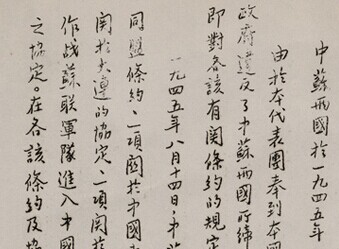 中蘇两國於一九四五年
由於本代表團奉到本國
政府違反了中蘇两國所締
即對各該有関條約的規定
一九四五年八月十四日,中蘇
同盟條約、二項関於中國
関於大連的協定、二項関於
作战蘇联軍隊進入中國
之協定。在各該條約及協